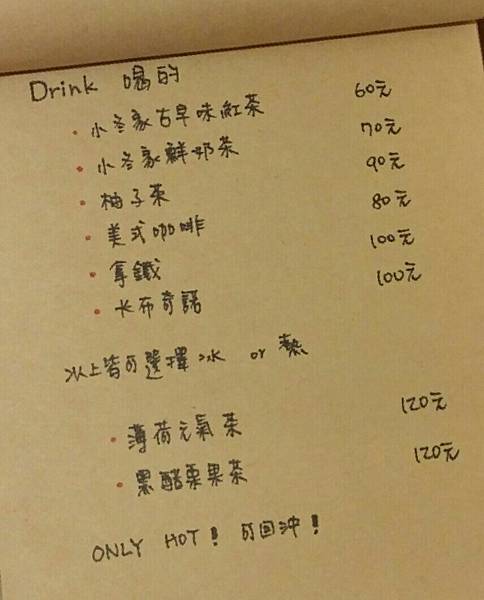 Drink 喝的
小冬家古早味紅茶 60元
小冬家鮮奶茶 70元
柚子茶 90元
美式咖啡 80元
拿鐵 100元
卡布奇諾 100元
以上皆可選擇冰 or 熱
薄荷元氣茶 120元
黑醋栗果茶 120元
ONLY HOT! 可回沖!